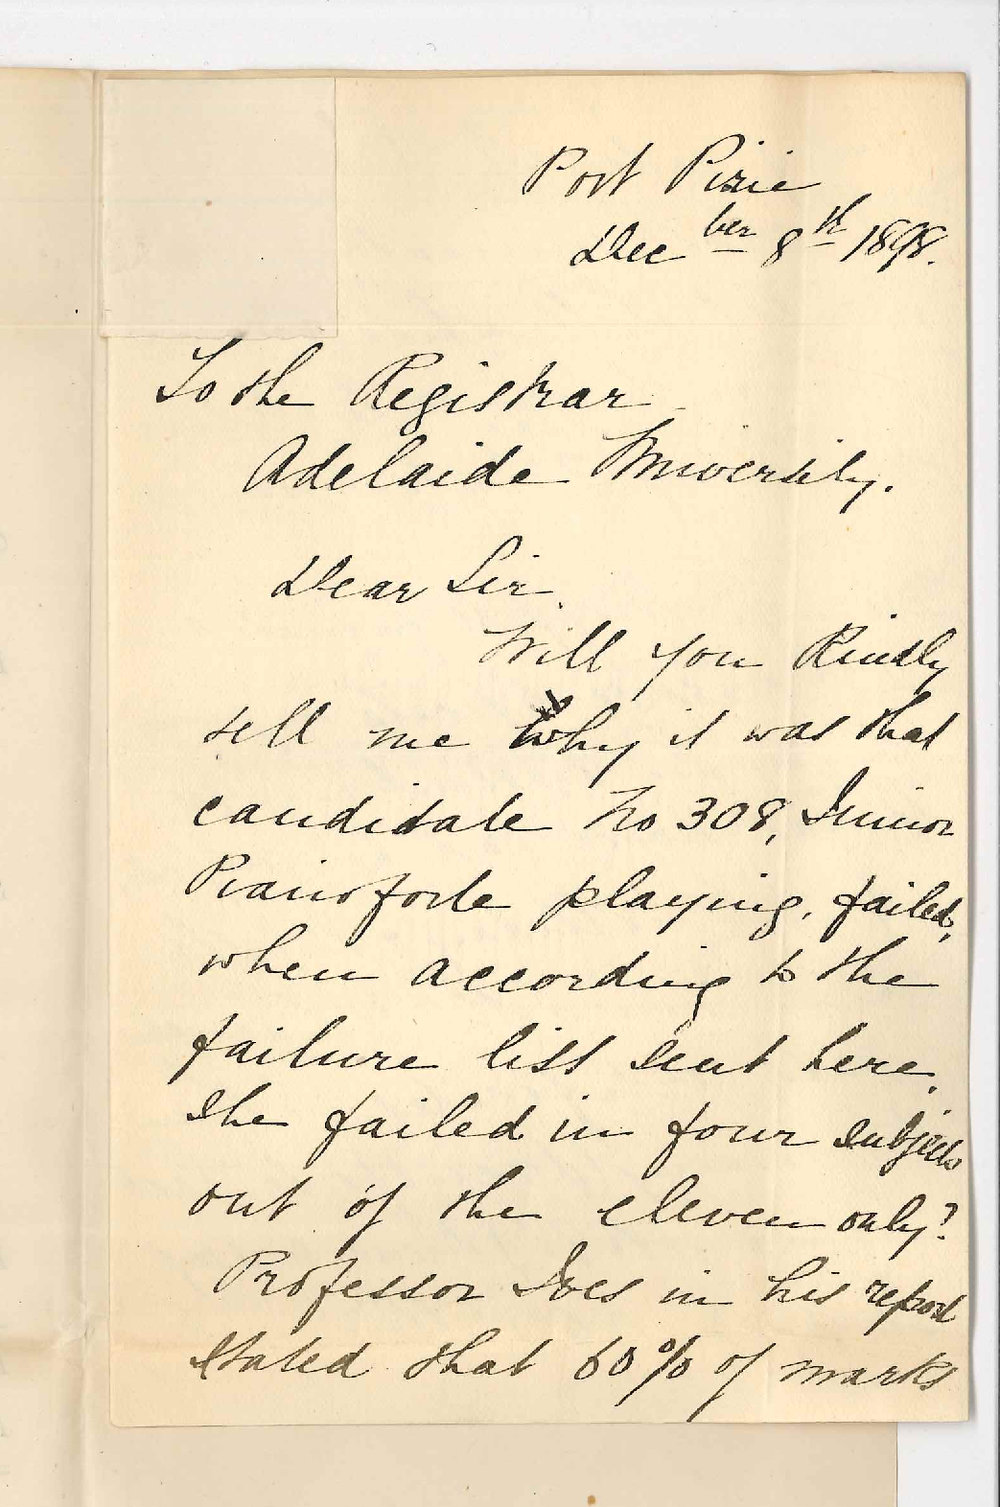 Port Pirie
Dec ber 8th 1898.
To the Registrar
Adelaide University.
Dear Sir.
Will you Kindly
tell me why it was that
candidate No 308, Junior
Pianoforte playing, failed,
when according to the
failure list sent here,
she failed in four subjects
out of the eleven only?
Professor Ives in his report
stated that 60% of marks